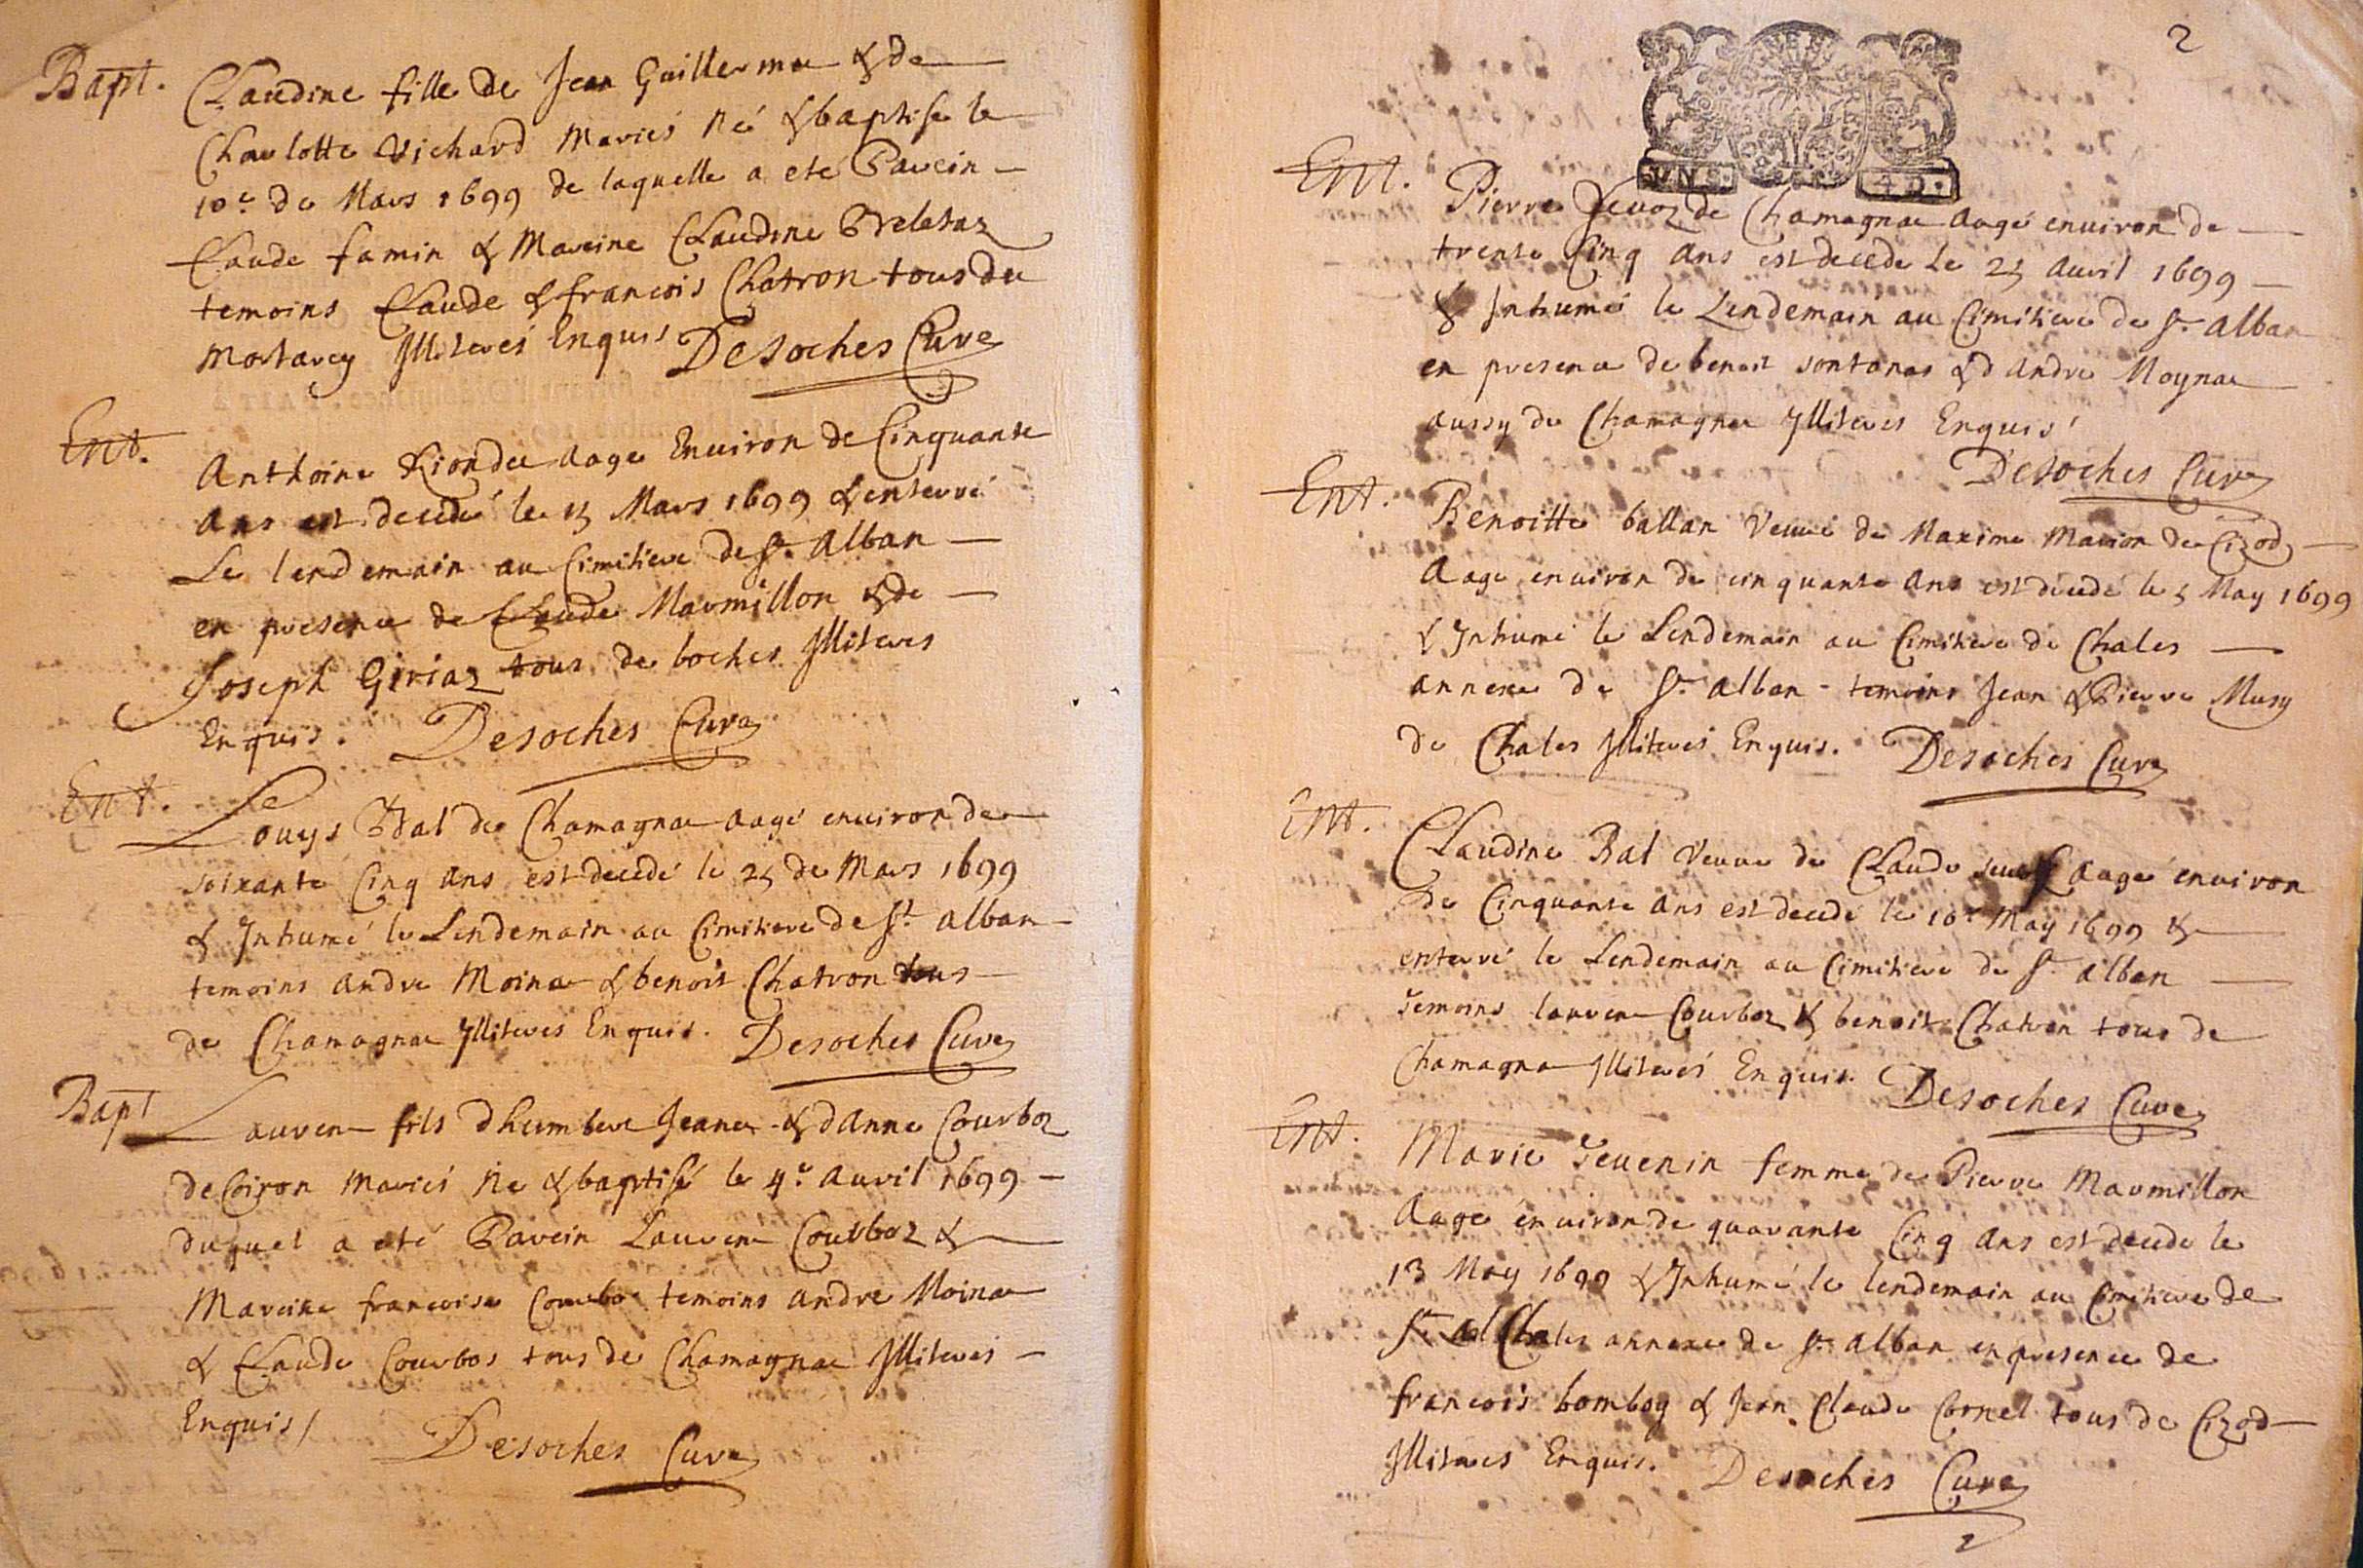 Bapt. Claudine fille de Jean Guillerme & de
Charlotte Richard Mariés Né & baptisé le
10e de Mars 1699 de laquelle a eté Parein
Claude famin & Mareine Claudine
temoins Claude & francois Chatron tous du
Mortarey Illiterés Enquis Desoches Curé
Ent.
Anthoine Riondet aagé Environ de Cinquante
Ans est decedé le 15 Mars 1699 & enterré
Le lendemain au Cimitiere de St. Alban
en presence de Claude Marmillon & de
Joseph Giriaz tous de boches Illiteres
Enquis. Desoches Curé
Ent. Louys Bal de Chamagnae aagé environ de
soixante Cinq ans est decedé le 25 de Mars 1699
& Inhumé le Lendemain au Cimitiere de St. alban
temoins andre Moinae & benoit Chatron tous
de Chamagnae Illiteres Enquis. Desoches Curé
Bapt Lauren fils dhumbert Jeanet & danne Courboz
de Coiron Mariés Né & baptisé le 4e. auvril 1699
duquel a eté Parein Lauren Courboz &
Mareine francoise Courbo temoins andre Moinae
& Claude Courbos tous de Chamagnae Illiteres
Enquis / Desoches Curé
2
UN S. 4 D.
Ent. Pierre de Chamagnae aagé environ de
trente Cinq ans est decedé Le 25 auvril 1699
& Inhumé le Lendemain au Cimitiere de St. alban
en presence de benoit sontonas & d andre Moynae
aussy de Chamagnae Illiteres Enquis
Desoches Curé
Ent. Benoitte ballan veuve de Maxime Marion de Cizod
Aagé environ de cinquante ans est decedé le 5 May 1699
& Inhumé le Lendemain au Cimitiere de Chales
annexe de St. alban - temoins Jean & Pierre Musy
de Chales Illiteres Enquis. Desoches Curé
Ent. Claudine Bal veuve de Claude aagé environ
de Cinquante ans est decedé le 10e May 1699 &
enterré le Lendemain au Cimitiere de St. alban
Temoins lauren Courboz & benoit Chatron tous de
Chamagnae Illiterés Enquis. Desoches Curé
Ent. Marie Tevenin femme de Pierre Marmillon
Aagé environ de quarante Cinq ans est decedé le
13 May 1699 & Inhumé le lendemain au Cimitiere de
St. al Chales annexe de St. alban en presence de
francois bomboy & Jean Claude Cornel tous de Cizod
Illiteres Enquis. Desoches Curé
2